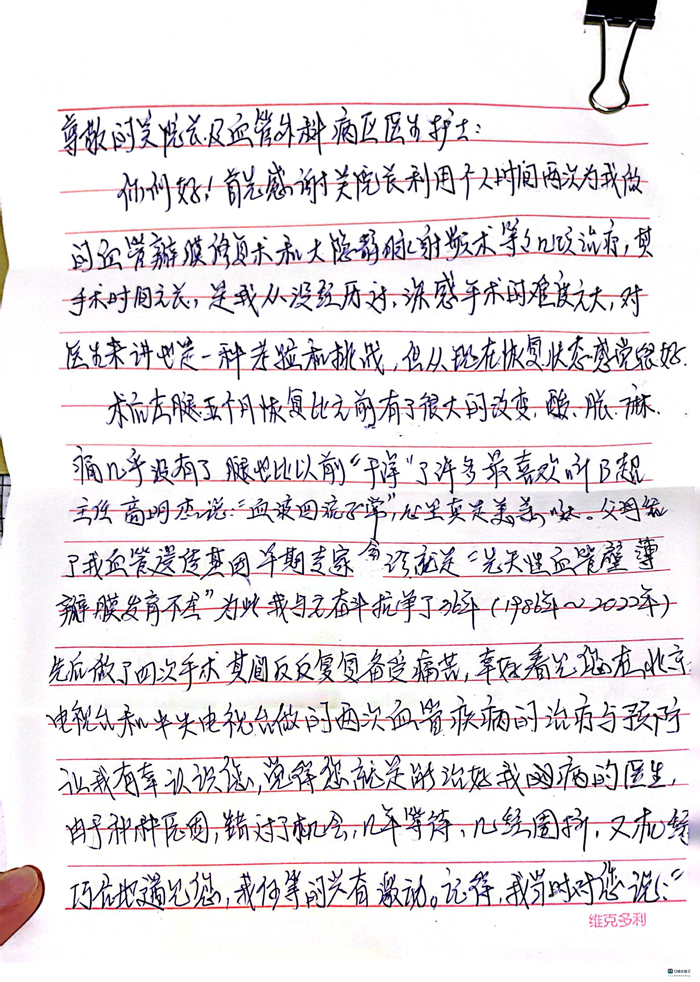 尊敬的吴院长及血管外科病区医生护士：
你们好！首先感谢吴院长利用个人时间两次为我做
的血管瓣膜修复术和大隐静脉射频术等几项治疗，其
手术时间之长，是我从没经历过，深感手术的难度之大，对
医生来讲也是一种考验和挑战，但从现在恢复状态感觉很好.
术后左腿五个月恢复比之前有了很大的改变，酸、胀、麻、
痛几乎没有了 腿也比以前“干净”了许多 最喜欢听B超
主任高明杰说：“血液回流正常”，心里真是美美哒。父母给
了我血管遗传基因 早期专家会诊就是“先天性血管壁薄
瓣膜发育不全” 为此我与之奋斗抗争了36年（1986年～2022年）
先后做了四次手术 其间反反复复备受痛苦，幸好看见您在北京
电视台和中央电视台做的两次血管疾病的治疗与预防
让我有幸认识您，觉得您就是能治好我的病的医生，
由于种种原因，错过了机会，几年等待，几经周折，又机缘
巧合地遇见您，我 等的 有 激动。记得，我当时对您说：“
维克多利